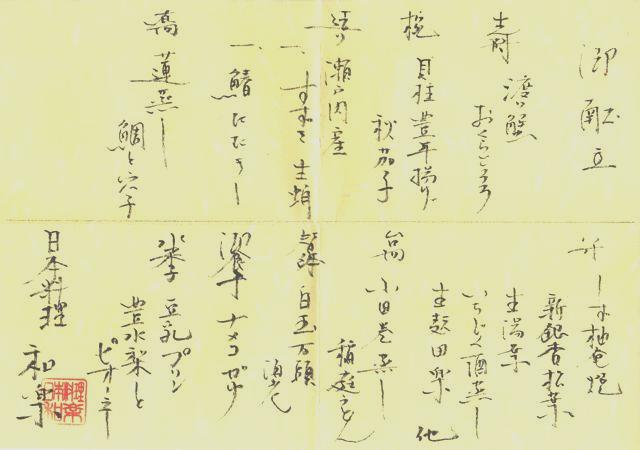 御献立
渡り蟹
おくらとろろ
椀 貝柱豊年揚げ
秋茄子
造り 瀬戸内産
一、すずき 生蛸
一、鰆たたき
高 蓮蒸し
鯛と穴子
かます柚庵焼
新銀杏松葉
生湯葉
いちじく酒蒸し
生麩田楽 他
小田巻蒸し
稲庭うどん
白玉万頭
御食事 ナメコ
豆乳プリン
豊水梨と
ピオーネ
日本料理 和楽